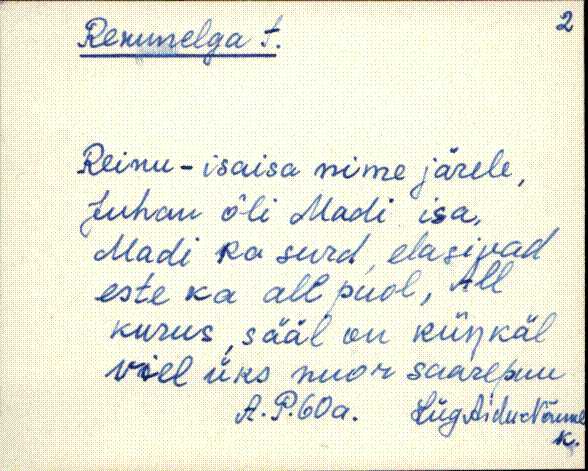 2
Remmelga t.
Reinu - isaisa nime järele,
Juhan õli Madi isa,
Madi ka surd, elasivad
este ka all puol, All
kurus, sääl on künkäl
viel üks nuor saarepuu
A. P. 60a. Lüg Aidu-Nõmme
k.